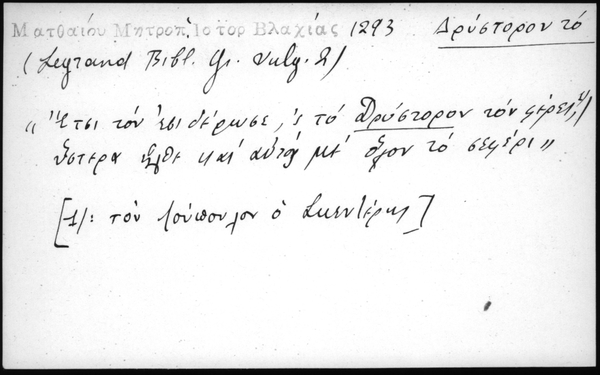 Ματθαίου Μητροπ. Ιστορ Βλαχίας 1293 Δρύστορον τό
(Legrand Bibl. Gr. Vulg. 2)
„ Ἔτσι τὸν ἐσιδέρωσε, 's τὸ Δρύστορον τὸν φέρει, 1)
ὕστερα ἦλθε καὶ αὐτὸ μὲ ὅλον τὸ σεφέρι „
[1): τὸν ὁ Σκεντέρης]